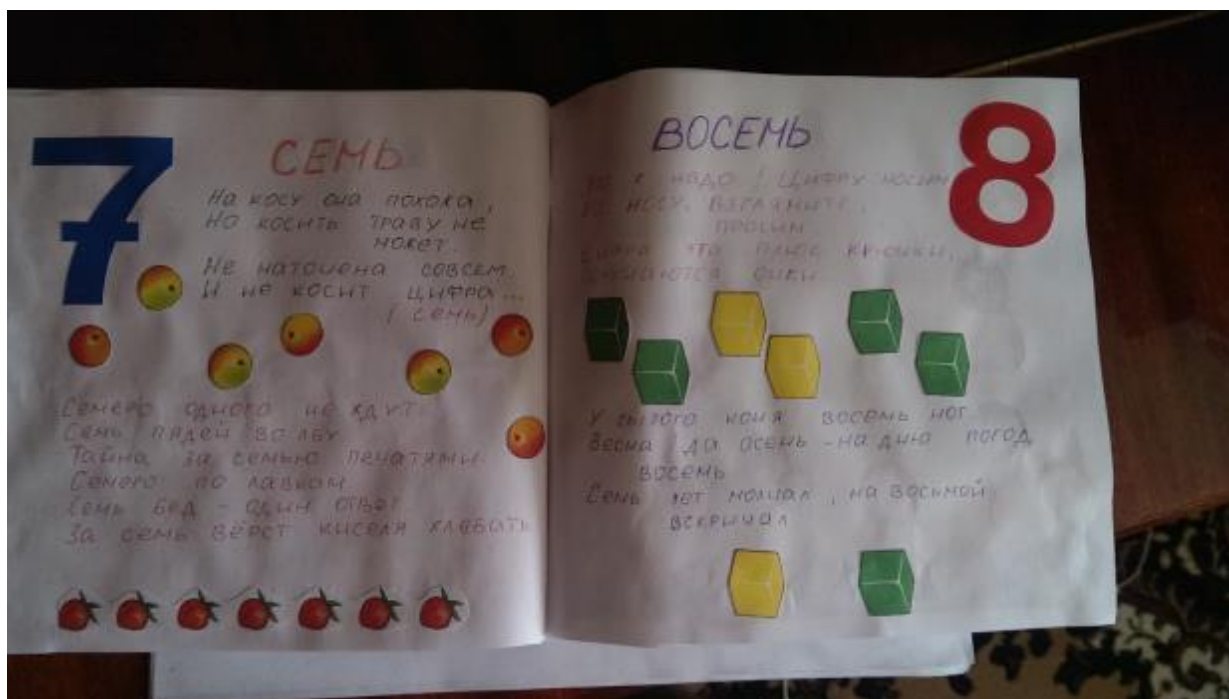 7
СЕМЬ
На косу она похожа,
Но косить траву не
может.
Не наточена совсем,
И не косит цифра...
(семь)
Семеро одного не ждут.
Семь пядей во лбу
Тайна за семью печатями.
Семеро по лавкам
Семь бед - один ответ
За семь вёрст киселя хлебать
8
ВОСЕМЬ
надо! Цифру носим
носу, взгляните,
просим
Цифра эта плюс крючки,
очки
У сытого коня восемь ног
Весна да осень - на дню погод
восемь
Семь лет молчал, на восьмой
вскричал